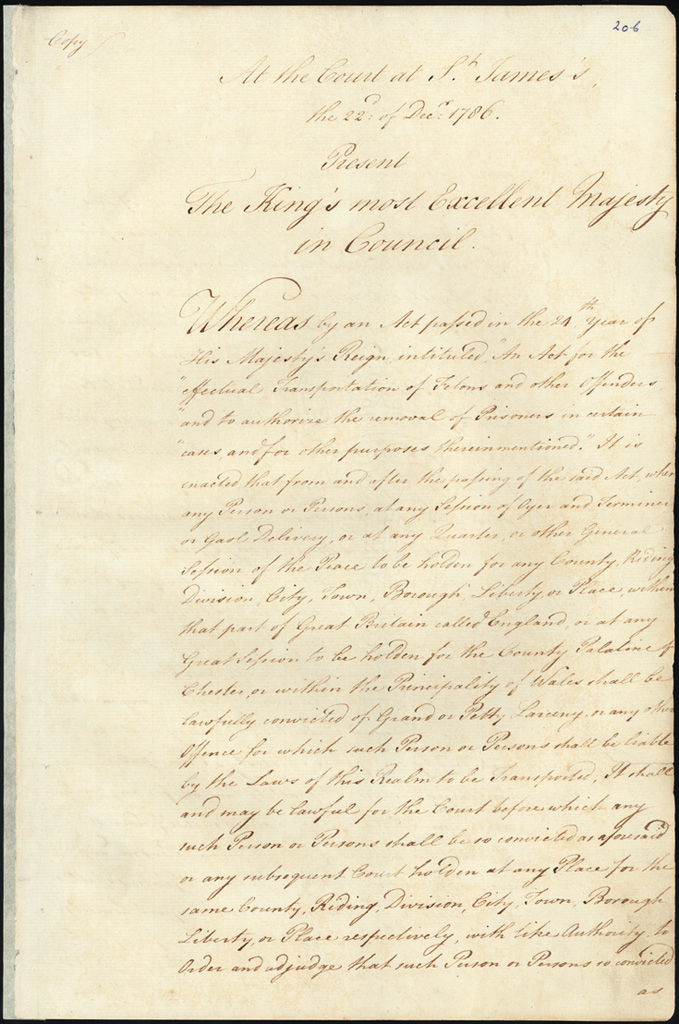 206
Copy
At the Court at St. James's,
the 22d: of Decr: 1786.
Present
The King's most Excellent Majesty
in Council.
Whereas by an Act passed in the 24th Year of
His Majesty's Reign intituled, "An Act for the
"effectual Transportation of Felons and other Offenders
"and to authorize the removal of Prisoners in certain
"cases, and for other purposes therein mentioned." It is
enacted that from and after the passing of the said Act, when
any Person or Persons, at any Session of Oyer and Terminer
or Gaol Delivery, or at any Quarter, or other General
Session of the Peace to be holden for any County, Riding
Division, City, Town, Borough, Liberty, or Place, within
that part of Great Britain called England, or at any
Great Session to be holden for the County Palatine of
Chester, or within the Principality of Wales shall be
lawfully convicted of Grand or Petty Larceny, or any other
Offence for which such Person or Persons shall be liable
by the Laws of this Realm to be Transported, It shall
and may be lawful for the Court before which any
such Person or Persons shall be so convicted as aforesaid
or any subsequent Court holden at any Place for the
same County, Riding, Division, City, Town, Borough
Liberty, or Place respectively, with like Authority, to
Order and adjudge that such Person or Persons so convicted
as